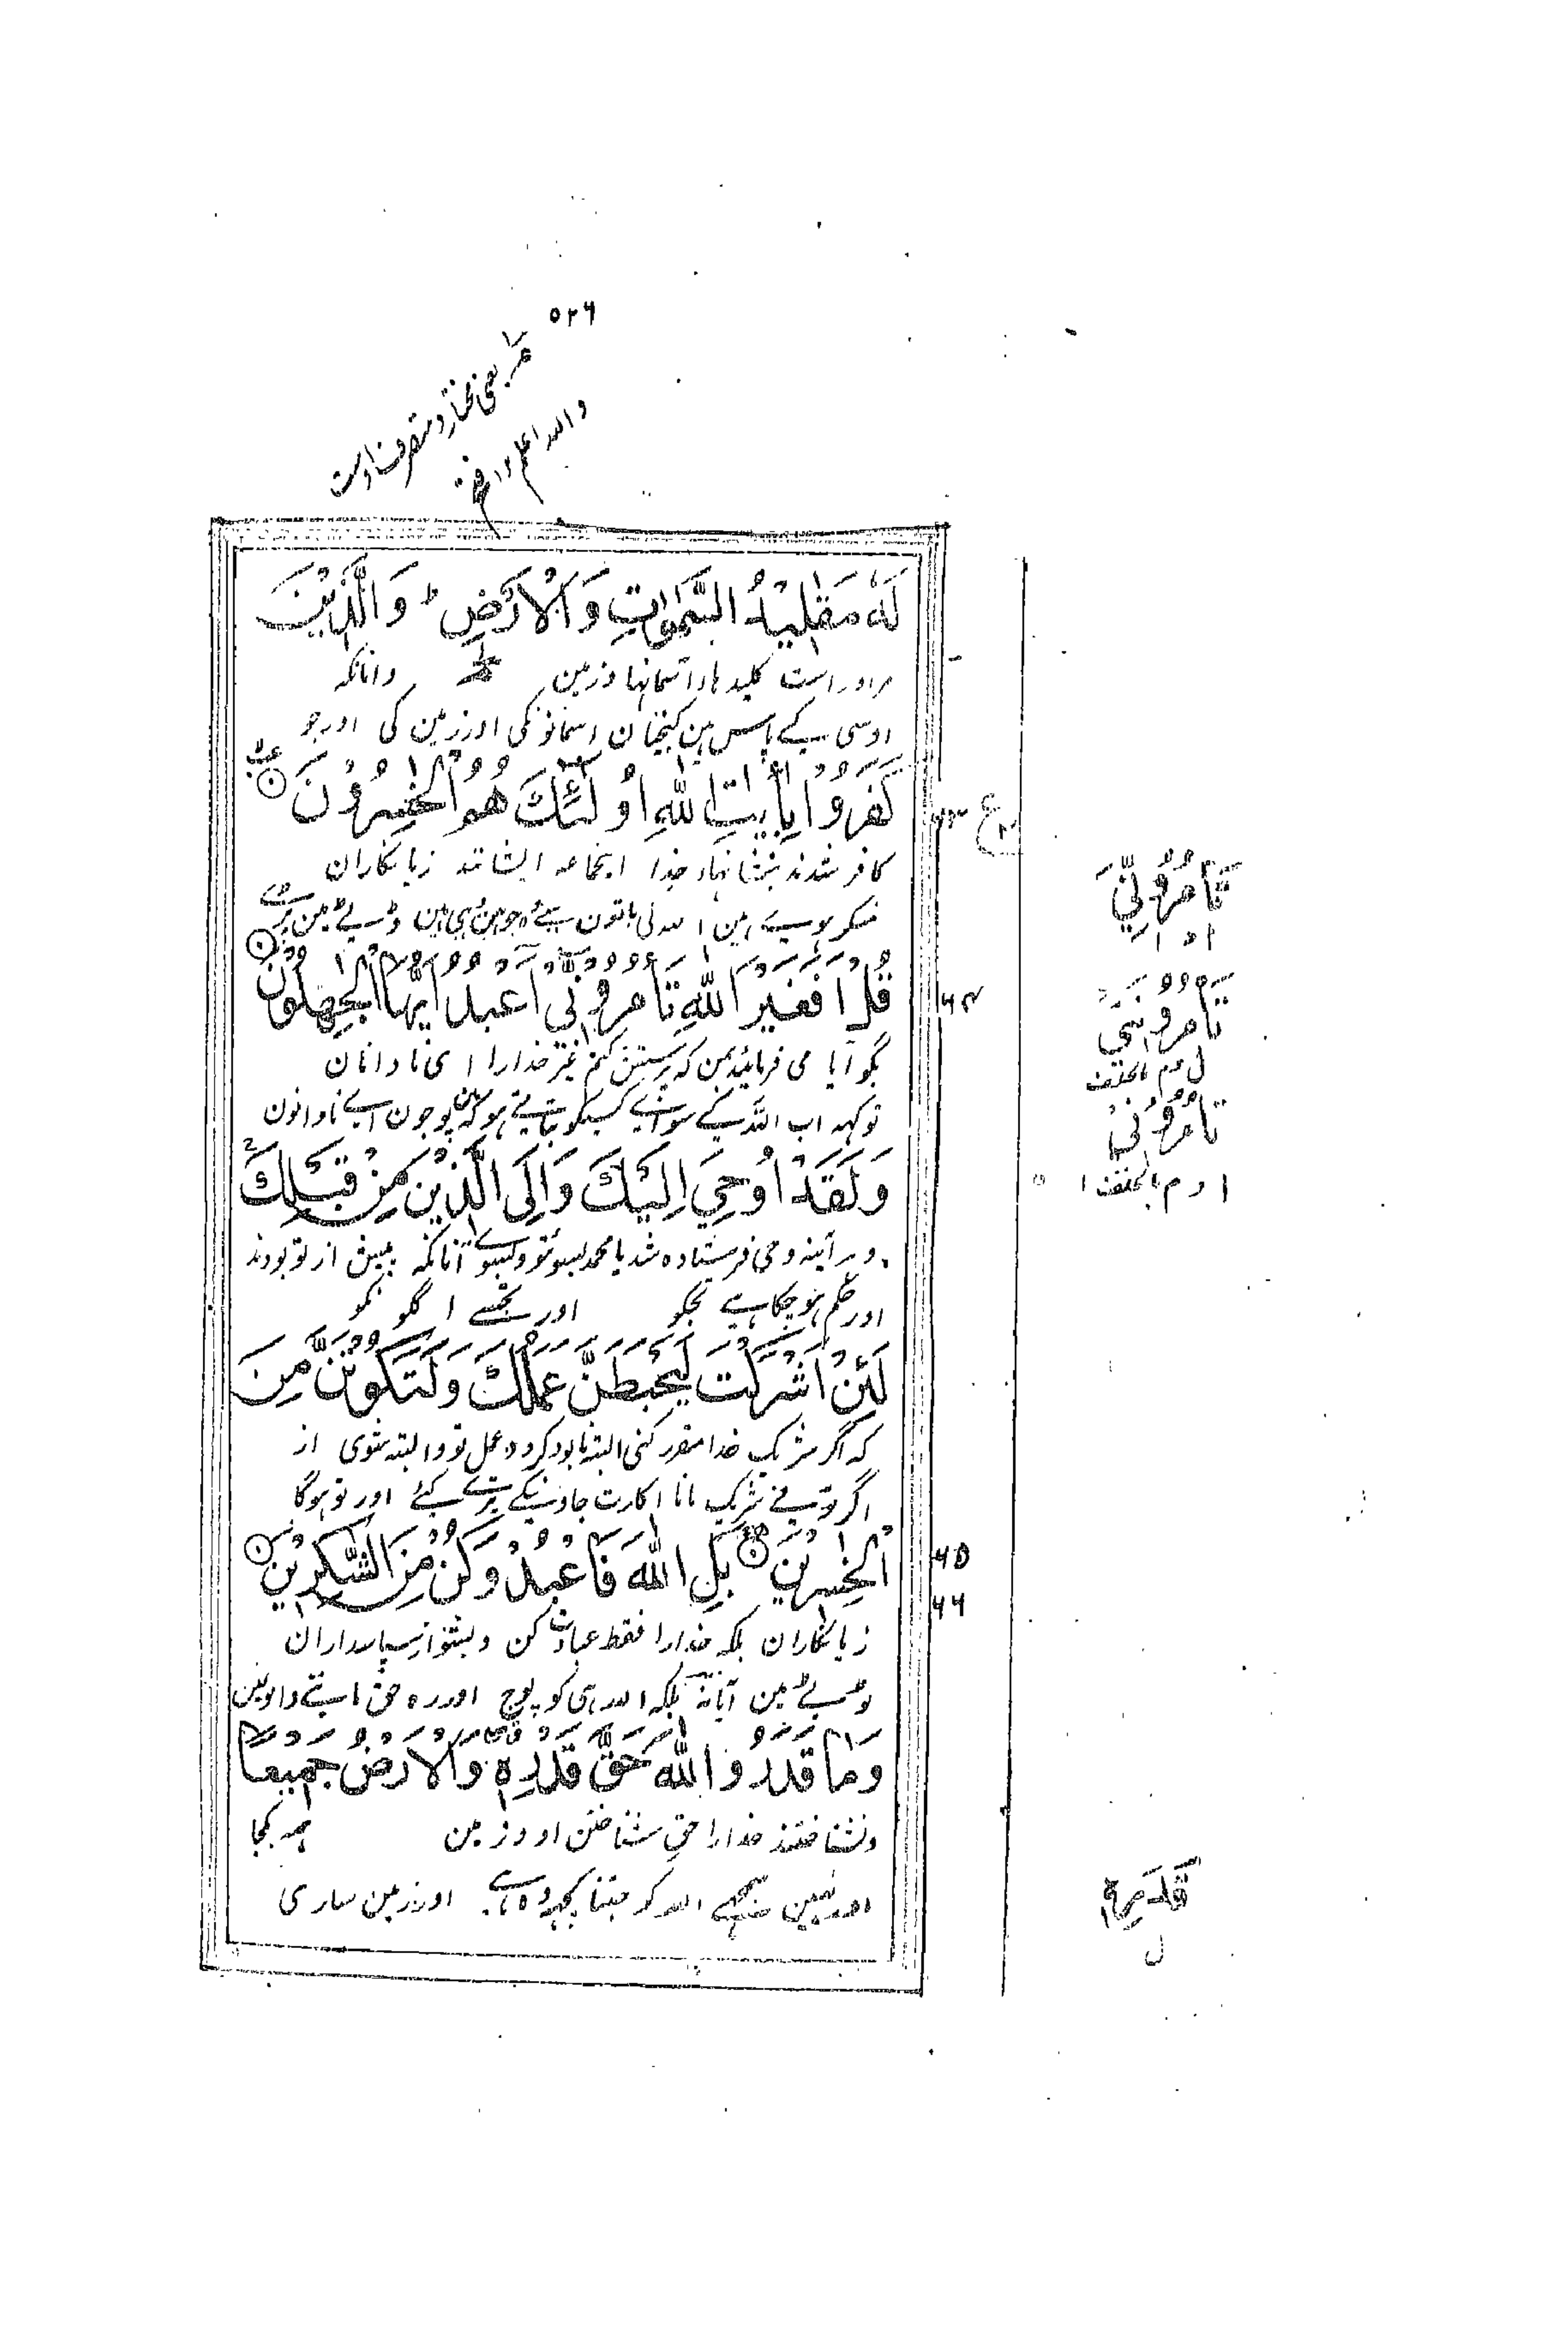 ۵۲۶
یعنی مختار و متصرف اوست
والله اعلم ۱۲ فتح
لَهٗ مَقَالِيْدُ السَّمٰوٰتِ وَالْاَرْضِ ؕ وَالَّذِيْنَ
مر او راست کلیدهاء آسمانها و زمین وانانکه
اوسی کے پاس ہین کنجیان اسمانونکی اور زمین کی اور جو
كَفَرُوْا بِاٰيٰتِ اللّٰهِ اُولٰٓئِكَ هُمُ الْخٰسِرُوْنَ
۶۳
ع
کافر شدند بنشانهاء خدا انجماعه ایشانند زیانکاران
منکر ہوے ہین اللہ کی باتون سے وہ جو ہین وہی ہین ٹوٹے مین پڑے
قُلْ اَفَغَيْرَ اللّٰهِ تَاْمُرُوْٓنِّيْٓ اَعْبُدُ اَيُّهَا الْجٰهِلُوْنَ
۶۴
بگو آیا می فرمائید بمن که پرستش کنم غیر خدا را ای نادانان
تو کہہ اب اللہ کے سواے کسیکو بتاتے ہو کہ پوجون اے نادانون
وَلَقَدْ اُوْحِيَ اِلَيْكَ وَاِلَى الَّذِيْنَ مِنْ قَبْلِكَ ۚ
و هر آینه وحی فرستاده شد یا محمد بسوئتو وبسوے آنانکه پیش از تو بودند
اور حکم ہو چکا ہے تجکو اور تجھسے اگلونکو
لَئِنْ اَشْرَكْتَ لَيَحْبَطَنَّ عَمَلُكَ وَلَتَكُوْنَنَّ مِنَ
که اگر شریک خدا مقرر کنی البته نابود گردد عمل تو و البته شوی از
اگر تونے شریک مانا اکارت جاوینگے تیرے کئے اور تو ہوگا
الْخٰسِرِيْنَ بَلِ اللّٰهَ فَاعْبُدْ وَكُنْ مِّنَ الشّٰكِرِيْنَ
۶۵
۶۶
زیانکاران بلکه خدا را فقط عبادت کن و بشو از سپاسداران
ٹوٹے مین آیا نہ بلکہ اللہ ہی کو پوج اور رہ حق ماننے والونمین
وَمَا قَدَرُوا اللّٰهَ حَقَّ قَدْرِهٖ وَالْاَرْضُ جَمِيْعًا
ونشناختند خدا را حق شناختن او و زمین همه یکجا
اور نہین سمجھے اللہ کو جتنا کچھ وہ ہے اور زمین ساری
تَاْمُرُوْنِّيَ
تَاْمُرُوْنَنِيْ
ل و م بالخلف
تَاْمُرُوْنِيْ
ا و م بالخلف
قَدَرِهٖ
ل